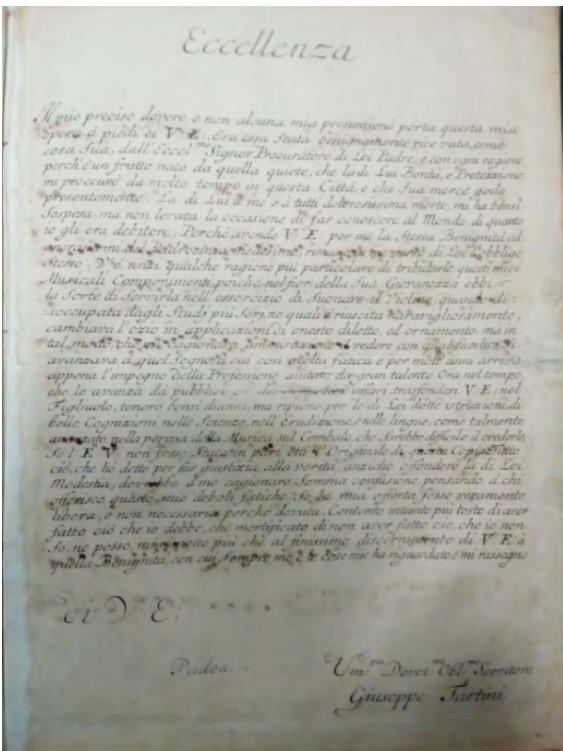 Eccellenza
Il più preciso dovere, e non alcuna mia presunzione porta questa mia
Opera à piedi di V. E. Era essa Stata benignamente ricevuta, come
cosa Sua, dall'Eccel.mo Signor Procuratore di Lei Padre, e con ogni ragione
perch'è un frutto nato da quella quiete, che la di Lui Bontà, e Protezzione
mi proccurò da molto tempo in questa Città, e che Sua mercè godo
presentemente. La di Lui à me e à tutti dolorosissima morte, mi hà bensì
Sospesa, ma non levata la occasione di far conoscere al Mondo di quanto
io gli era debitore. Perchè avendo V. E. per me la Stessa Benignità ed
medesimo, rimane in me verso di Lei l'obbligo
Stesso. V'è anzi qualche ragione più particolare di tributarle questi miei
Musicali Componimenti, poichè nel fior della Sua Giovanezza ebbi
la Sorte di Servirla nell'essercizio di Suonare il Violino, quando di-
soccupata dagli Studj più Serj, ne quali è riuscita maravigliosamente,
cambiava l'ozio in applicazioni di onesto diletto, ed ornamento, ma in
tal modo, che mi cagionava ammirazione il vedere con qual
avanzava à quel Segno, à cui con molta fatica e per molt'anni arriva
appena l'impegno della Professione aiutato da gran talento. Ora nel tempo,
che le avanza dà pubblici affari, trasfonder V. E. nel
Figliuolo, tenero bensì d'anni, ma ripieno per le di Lei dotte istruzioni, di
belle Cognizioni nelle Scienze, nell'Erudizione, e nelle lingue, come talmente
avanzato nella perizia della Musica Sul Cembalo, che Sarebbe difficile il crederlo
Se l'E. V. non fosse Stata in pari età l'Originale di questa Copia. Tutto
ciò, che hò detto per far giustizia alla verità, anzichè offendere la di Lei
Modestia, dovrebbe à me cagionare Somma confusione pensando à chi
offerisco queste mie deboli fatiche, Se la mia offerta fosse veramente
libera, e non necessaria perchè dovuta. Contento intanto più tosto di aver
fatto ciò che io debbo, che mortificato di non aver fatto ciò, che io non
Sò, ne posso, mi rimetto più che al finissimo discernimento di V. E. à
quella Benignità, con cui Sempre me, e le cose mie hà riguardato, e mi rassegno
Di V. E.
Padoa
Um.mo Devot.mo Obl.mo Servitore
Giuseppe Tartini